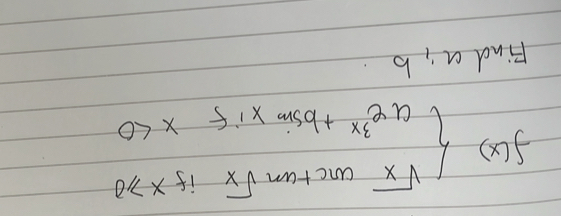 f(x) { √x arctan √x if x ≥ 0
a e^{3x} + b sin x if x < 0
Find a, b.